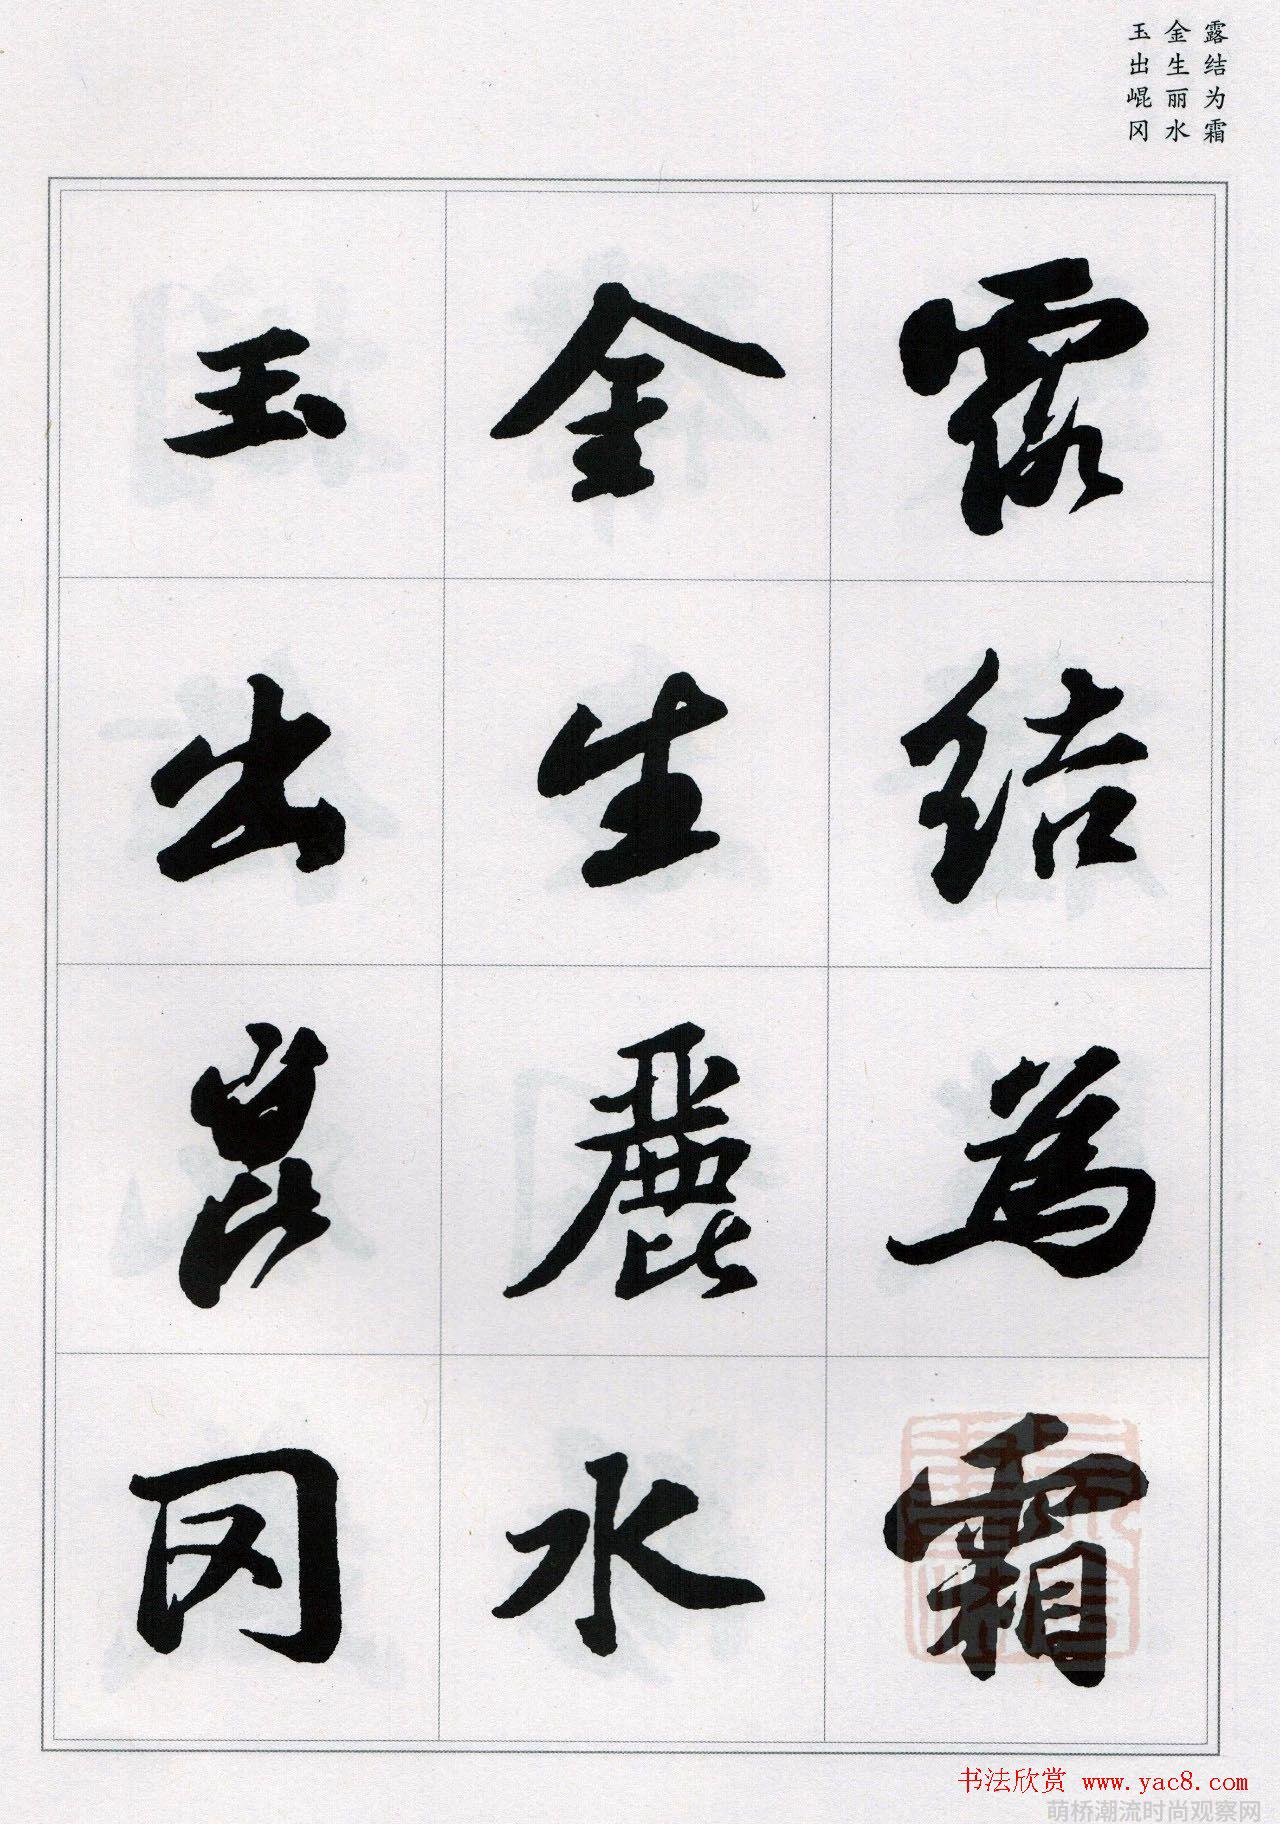 露结为霜
金生丽水
玉出崐冈
露結為霜
金生麗水
玉出崑冈
书法欣赏 www.yac8.com
萌桥潮流时尚观察网